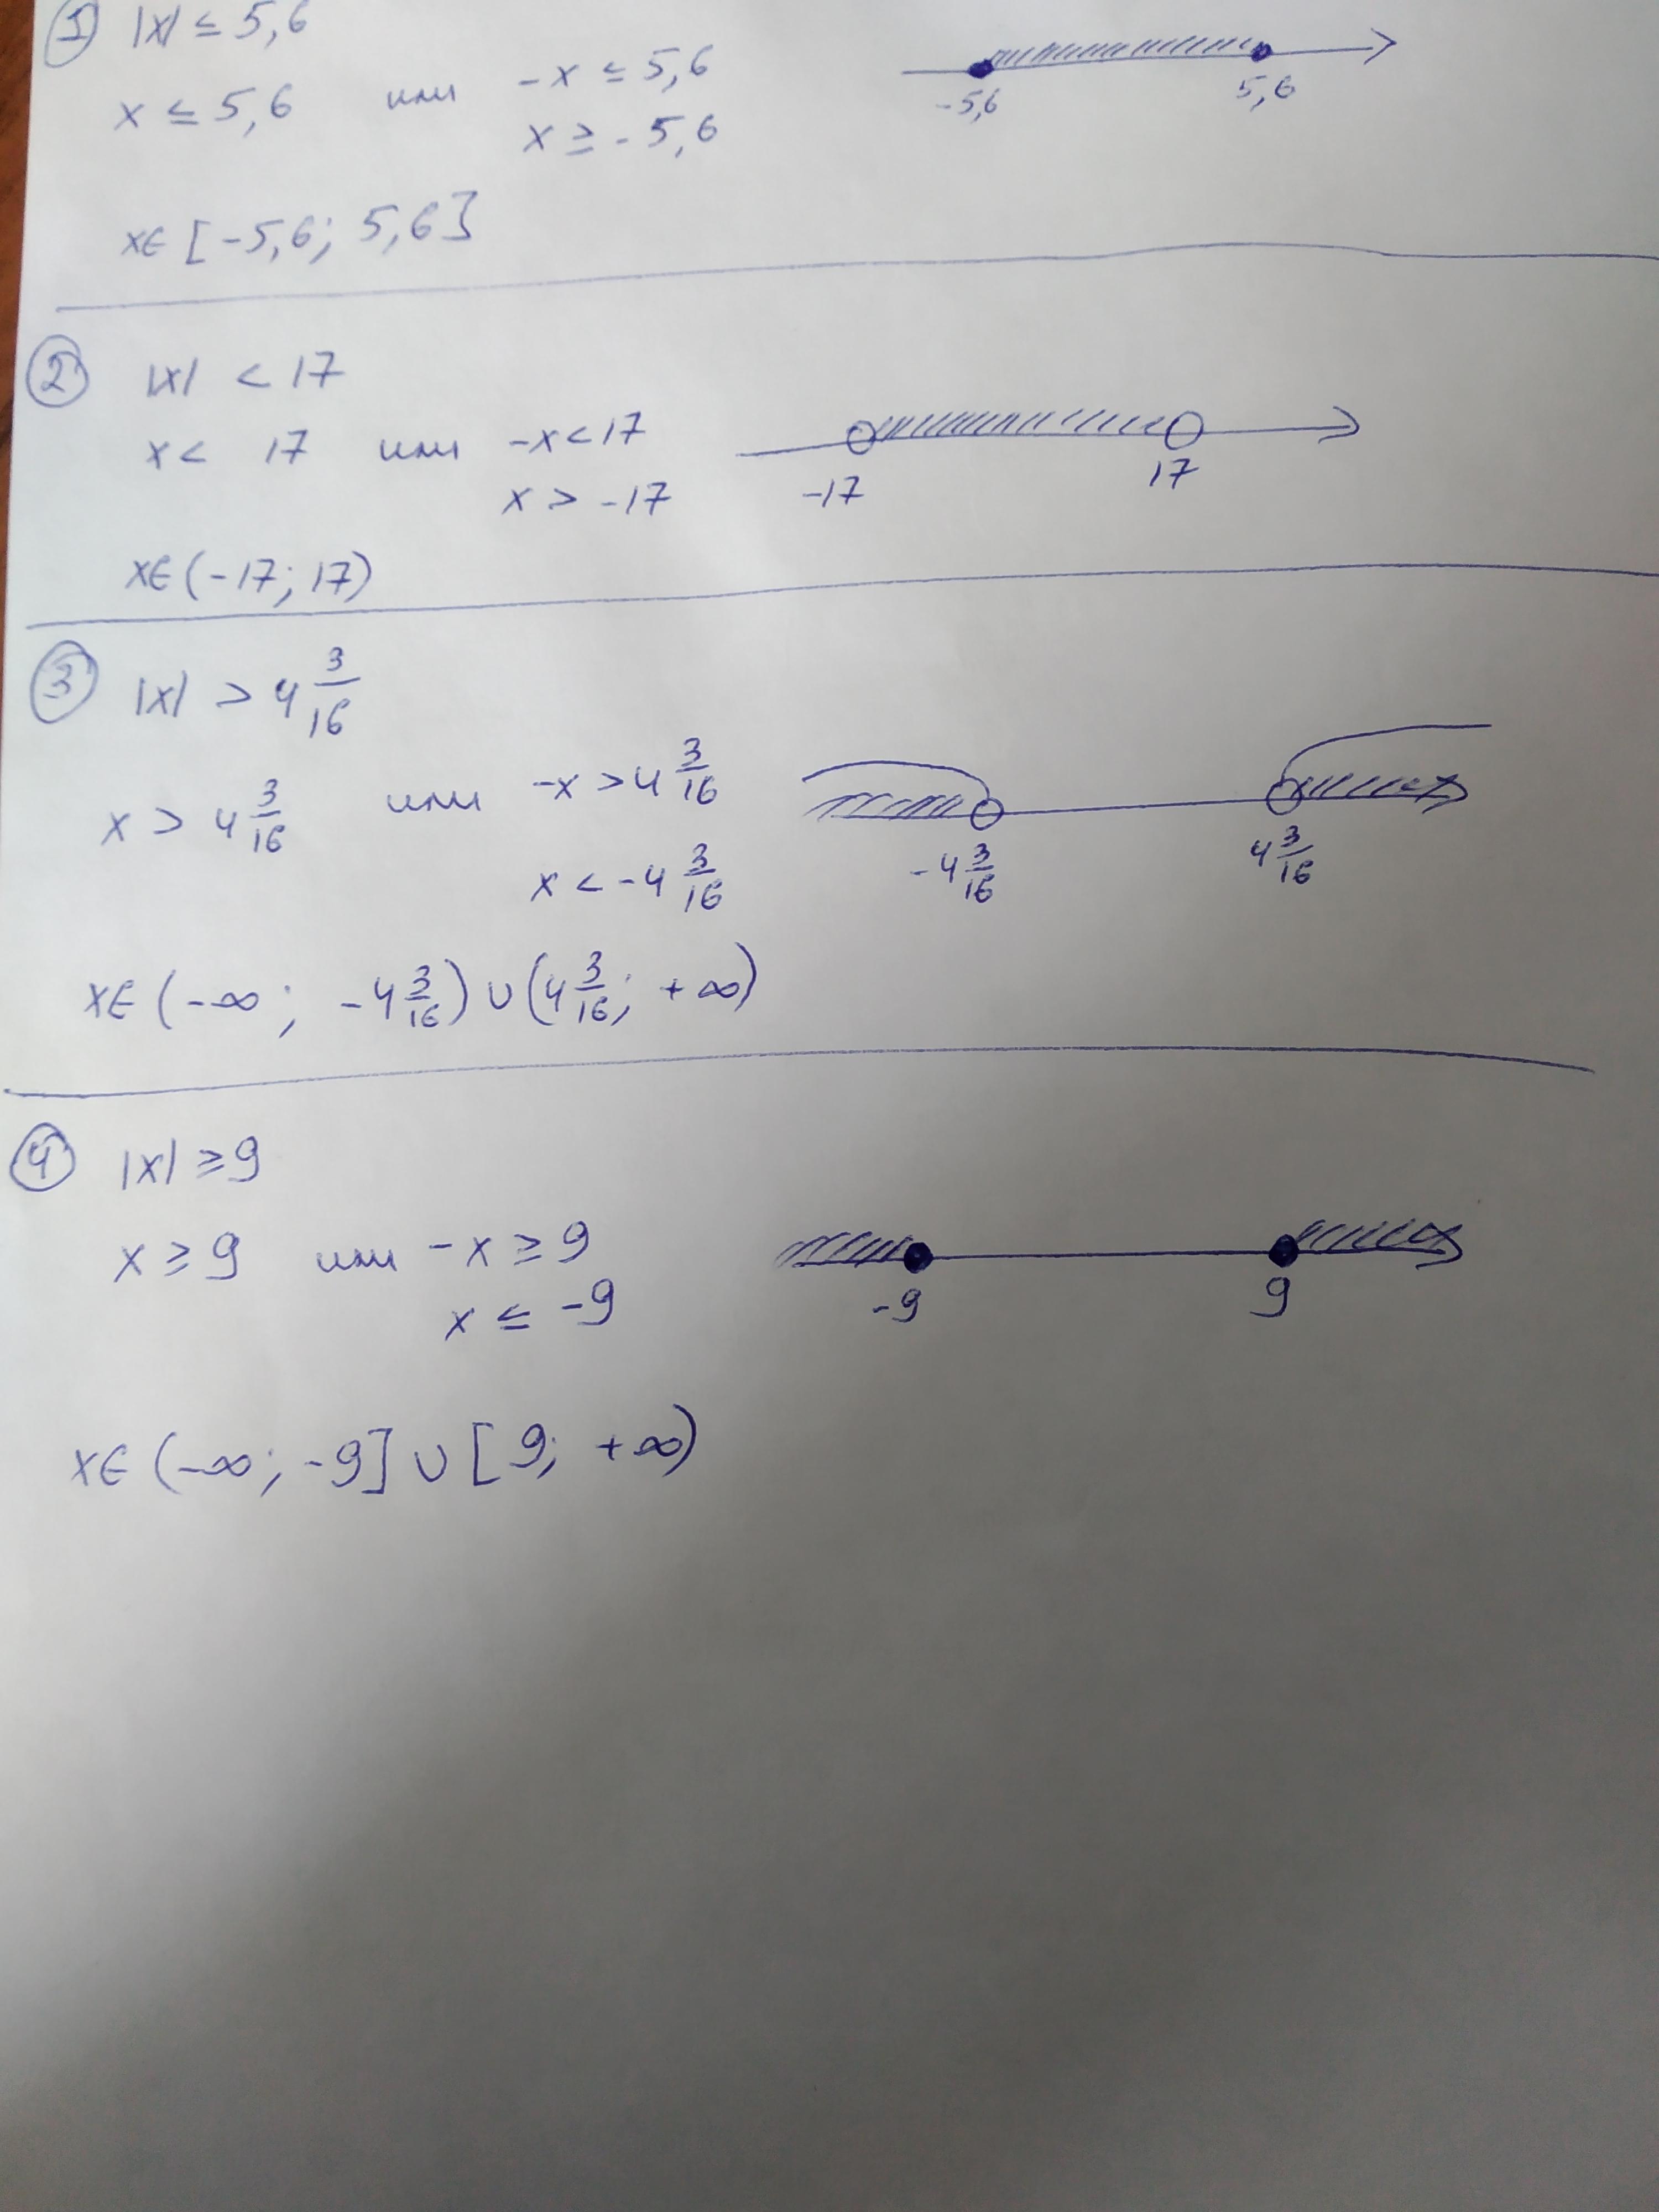 1 |x| ≤ 5,6
x ≤ 5,6 или -x ≤ 5,6
x ≥ -5,6
-5,6 5,6
x∈[-5,6; 5,6]
2 |x| < 17
x < 17 или -x < 17
x > -17
-17 17
x∈(-17; 17)
3 |x| > 4 3/16
x > 4 3/16 или -x > 4 3/16
x < -4 3/16
-4 3/16 4 3/16
x∈(-∞; -4 3/16) ∪ (4 3/16; +∞)
4 |x| ≥ 9
x ≥ 9 или -x ≥ 9
x ≤ -9
-9 9
x∈(-∞; -9] ∪ [9; +∞)